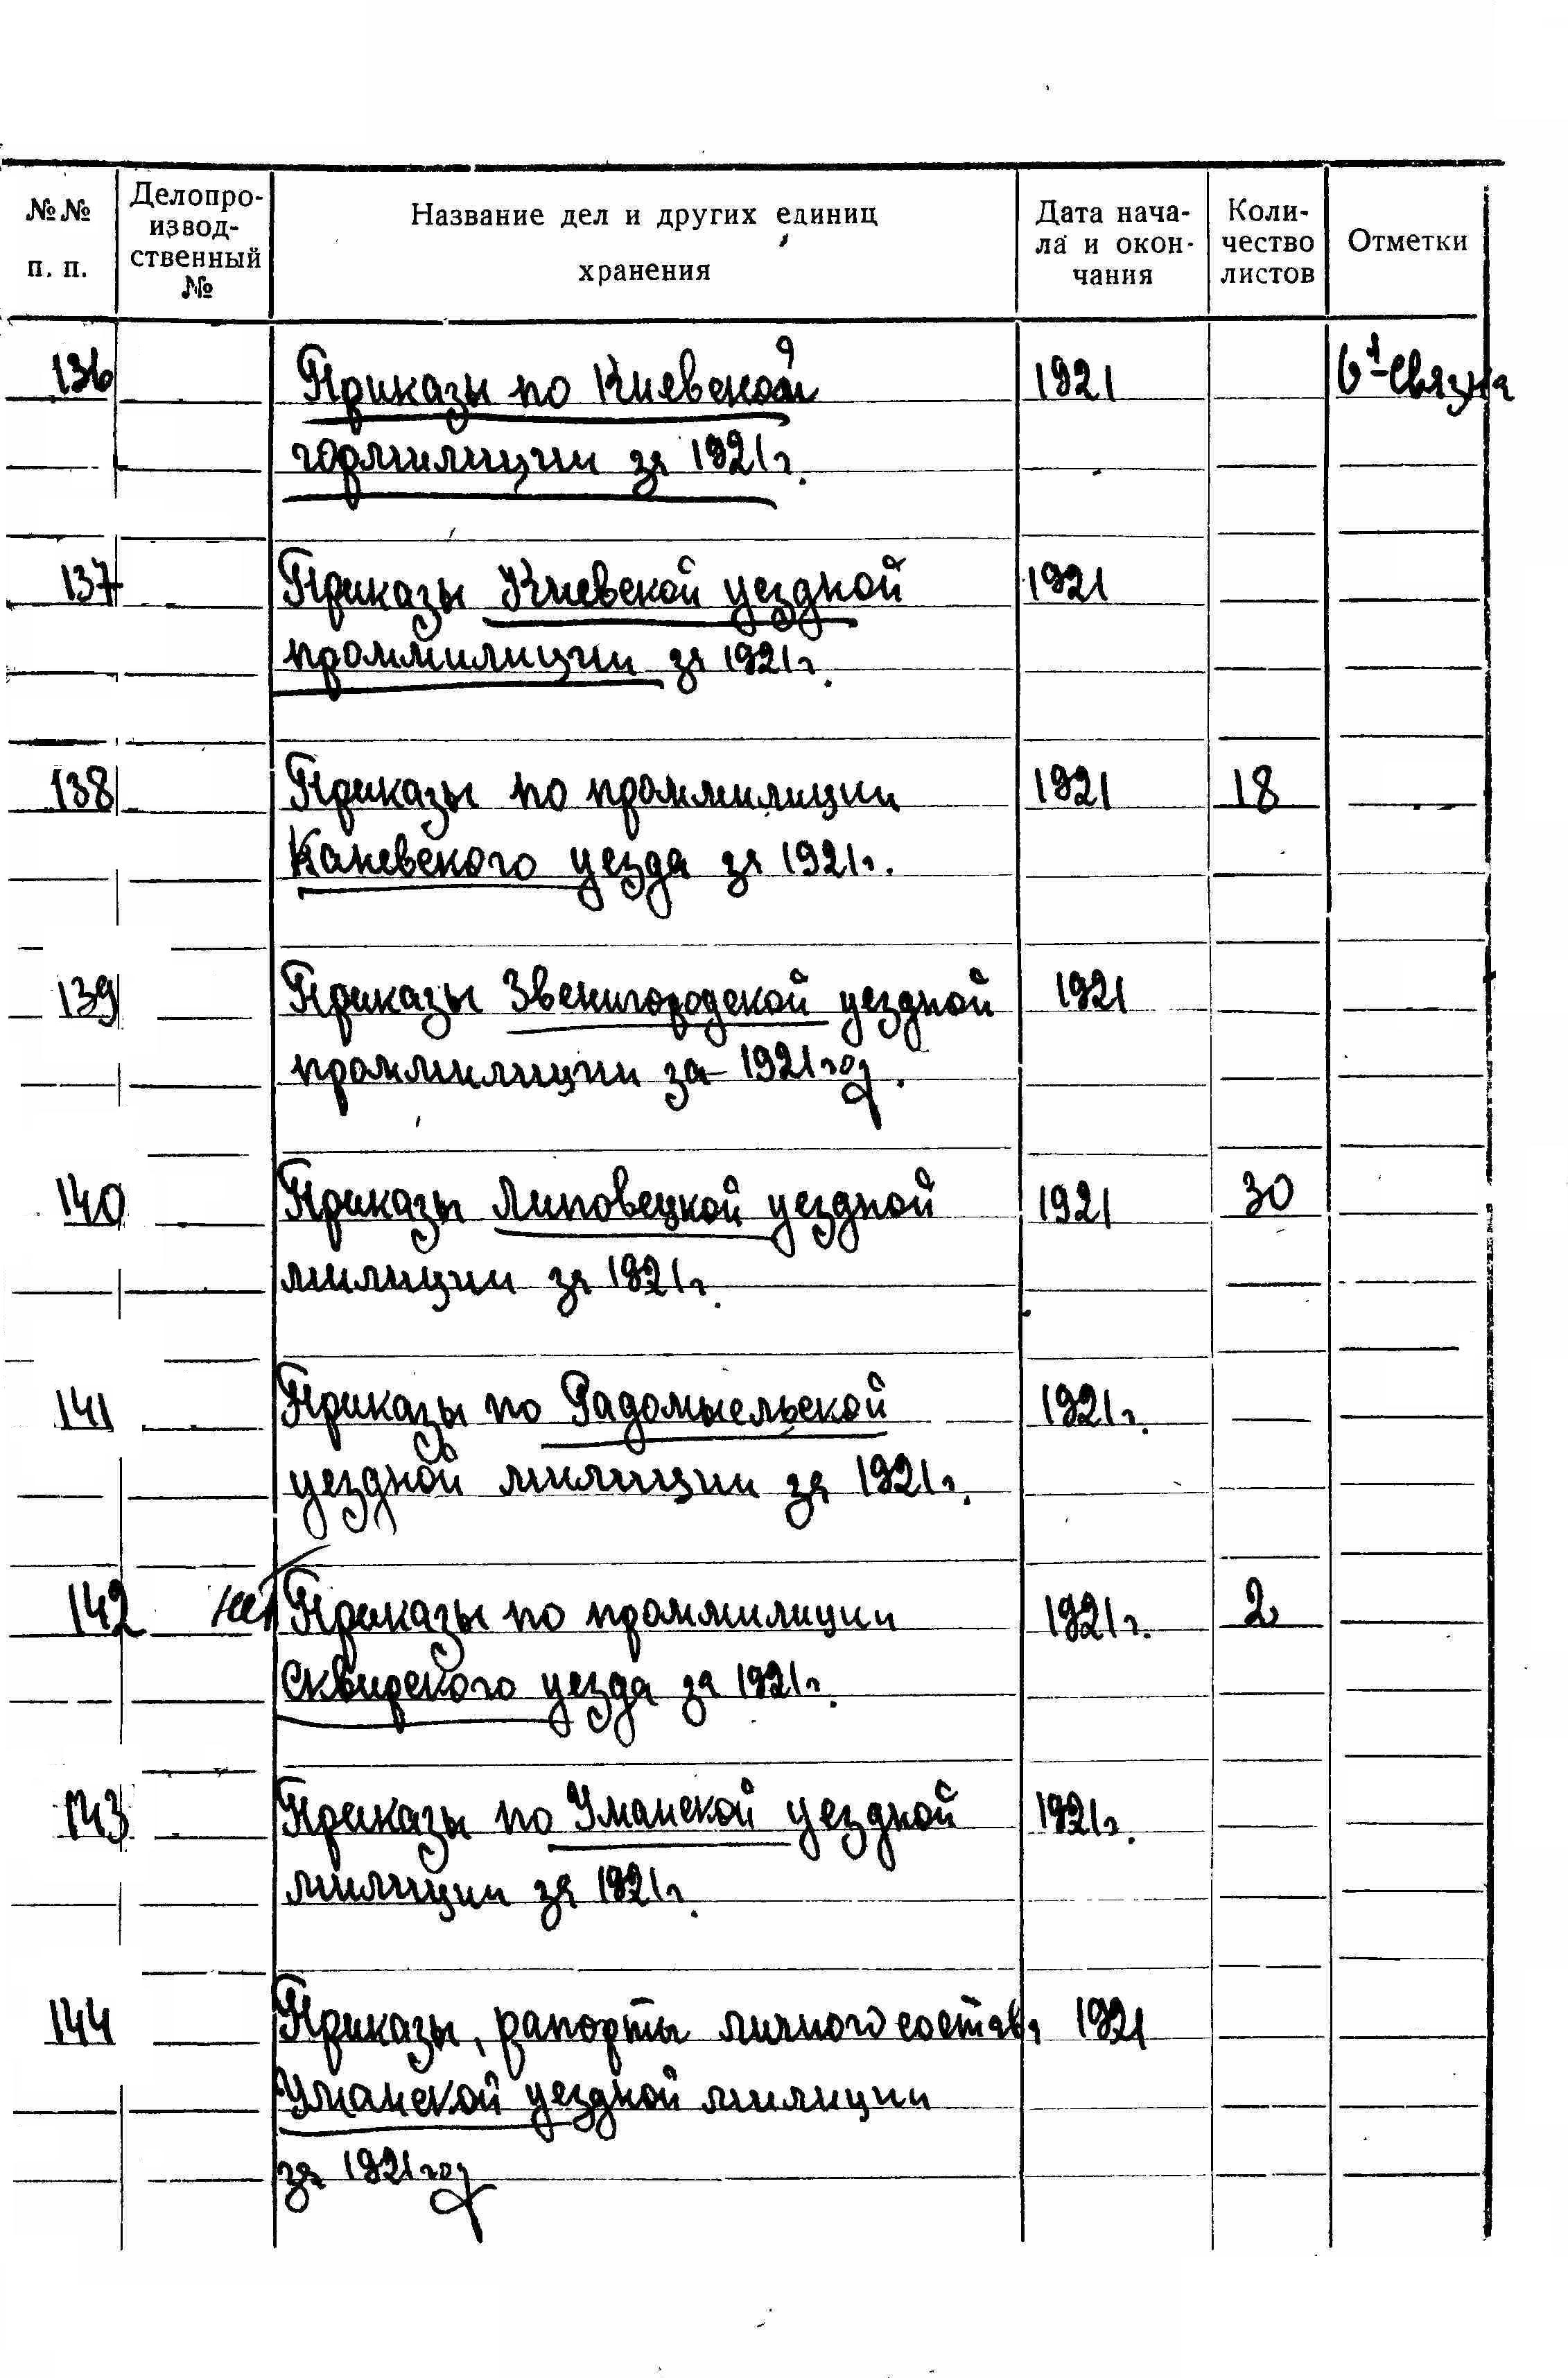 №№ п. п.
Делопро-
извод-
ственный
№
Название дел и других единиц
хранения
Дата нача-
ла и окон-
чания
Коли-
чество
листов
Отметки
136 Приказы по Киевской 1921 связка
гормилиции за 1921г.
137 Приказы Киевской уездной 1921
проммилиции за 1921г.
138 Приказы по проммилиции 1921 18
Каневского уезда за 1921г.
139 Приказы Звенигородской уездной 1921
проммилиции за 1921год.
140 Приказы Липовецкой уездной 1921 30
милиции за 1921г.
141 Приказы по Радомысльской 1921г.
уездной милиции за 1921г.
142 нет Приказы по проммилиции 1921г. 2
Сквирского уезда за 1921г.
143 Приказы по Уманской уездной 1921г.
милиции за 1921г.
144 Приказы, рапорты личного состава 1921
Уманской уездной милиции
за 1921год